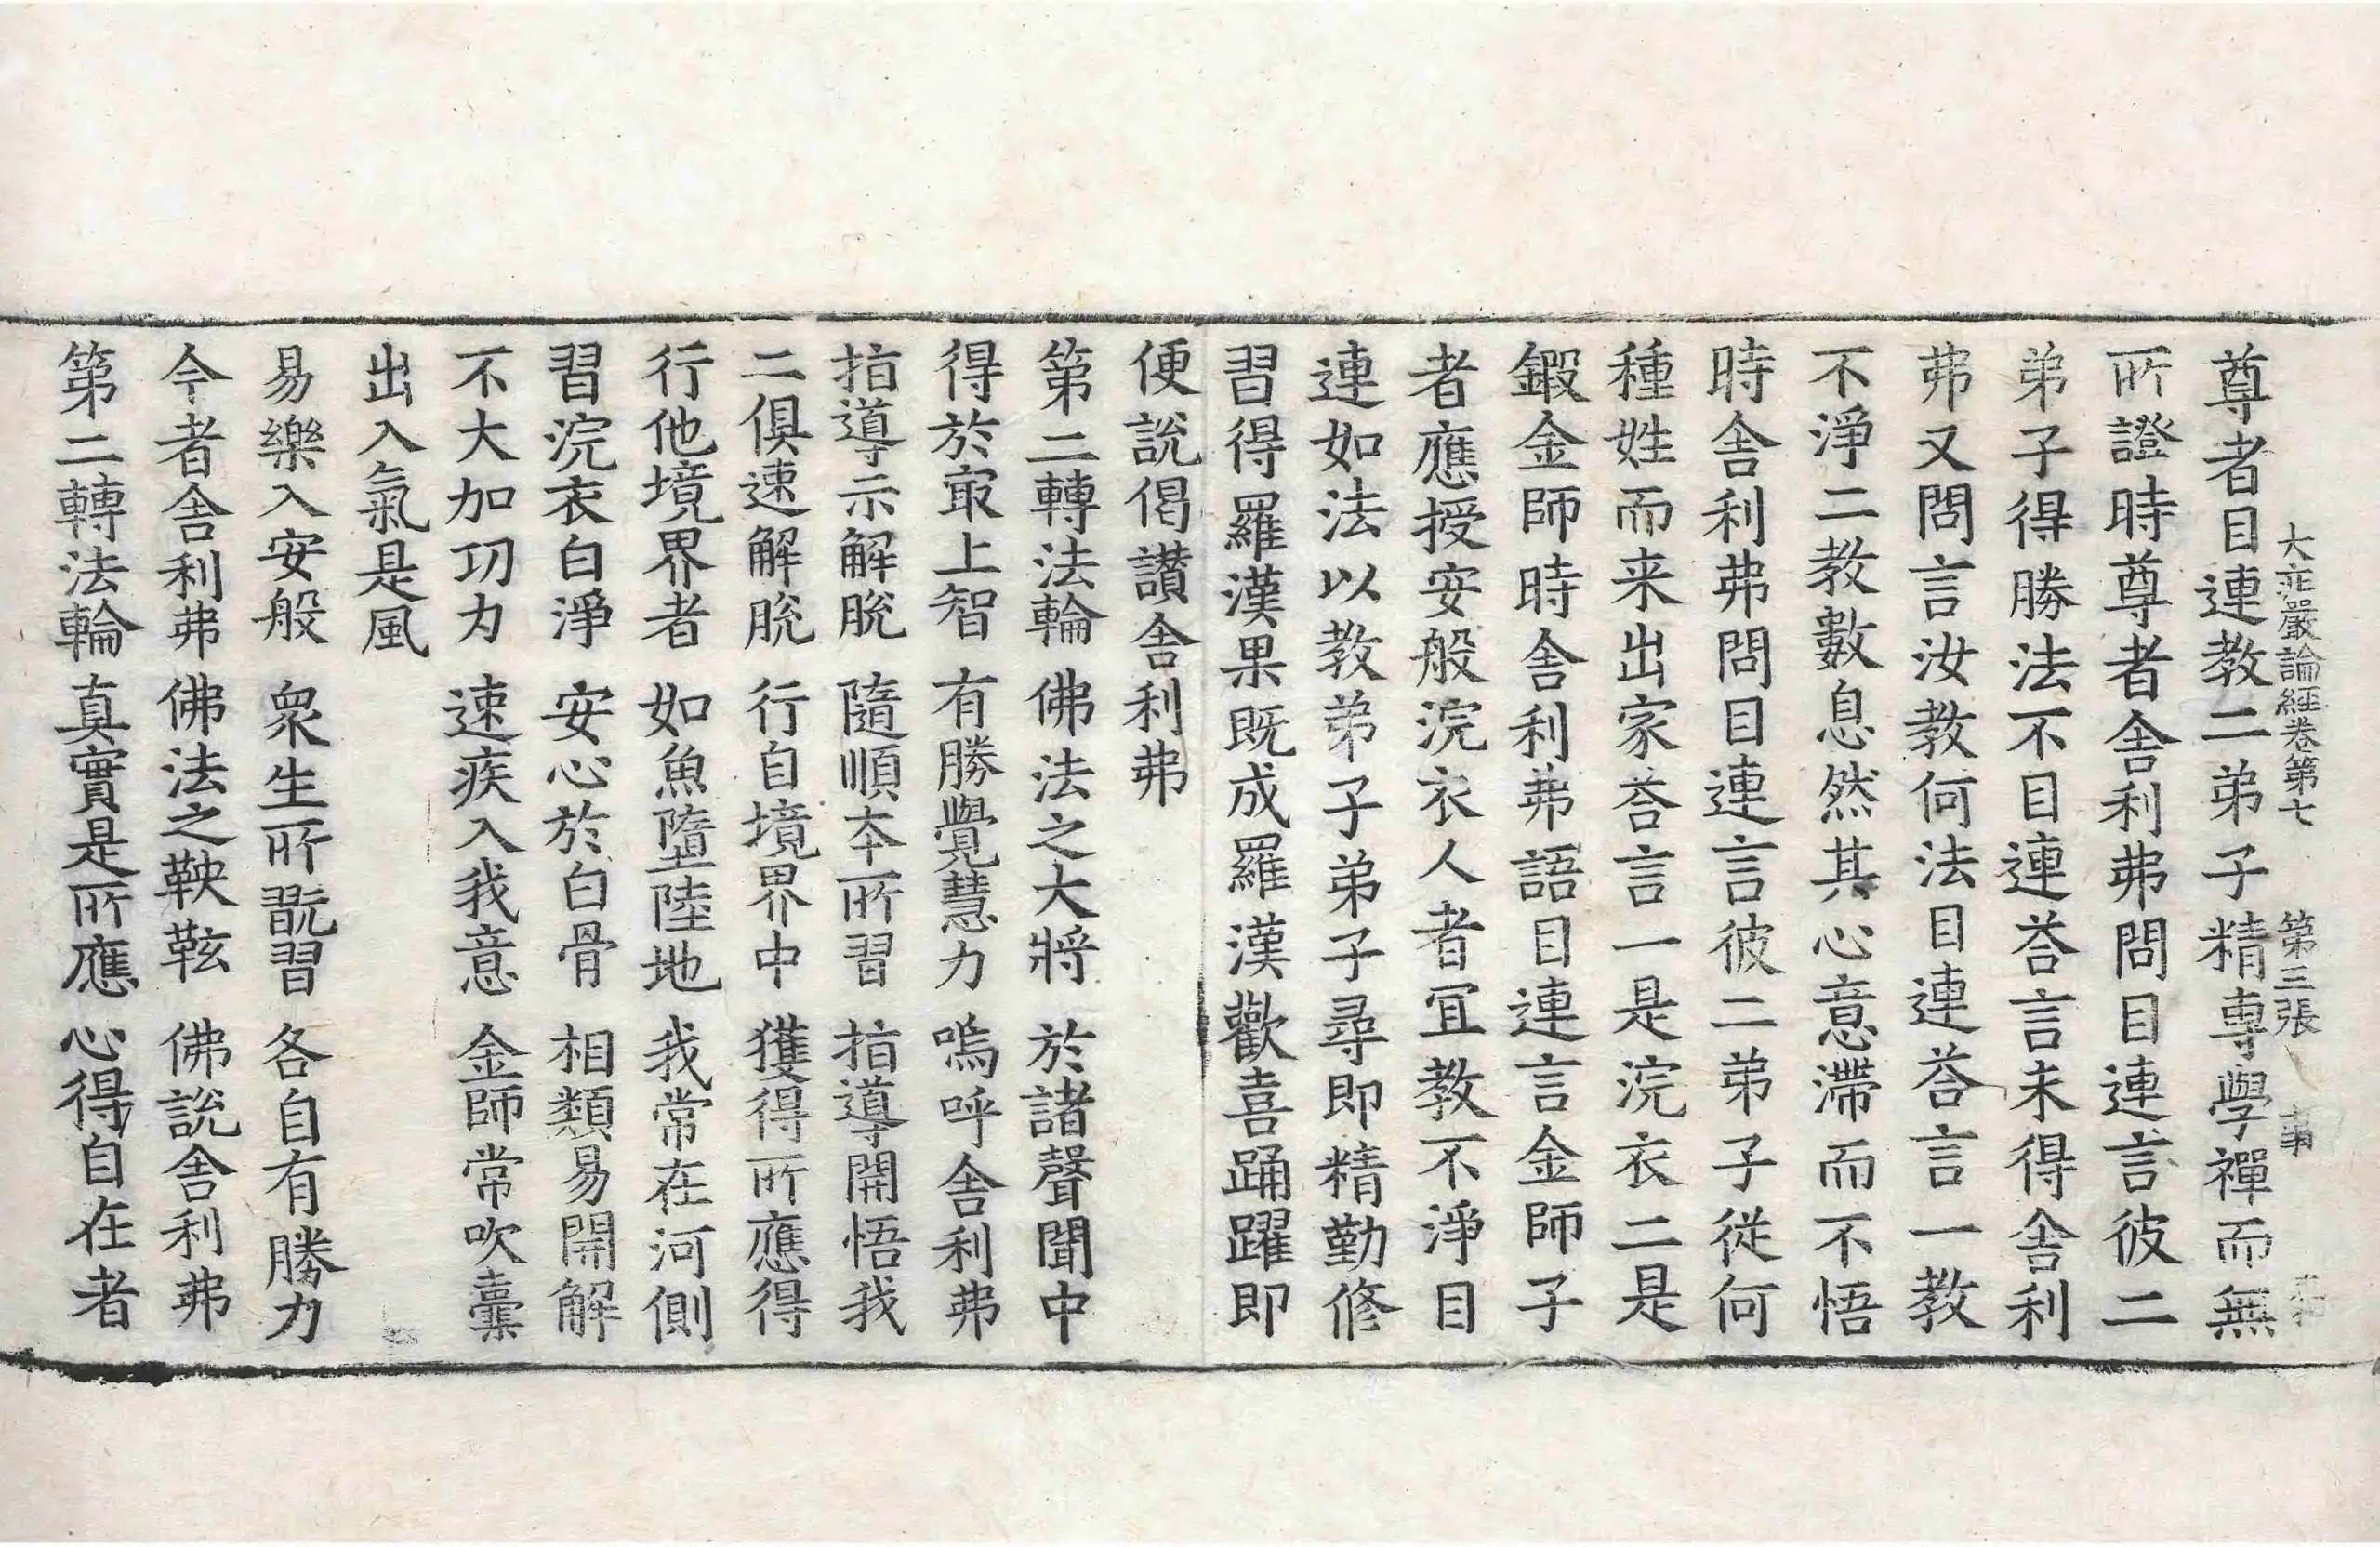 大庄嚴論經卷第七 第三張 事
尊者目連教二弟子精專學禪而無
所證時尊者舍利弗問目連言彼二
弟子得勝法不目連荅言未得舍利
弗又問言汝教何法目連荅言一教
不淨二教數息然其心意滯而不悟
時舍利弗問目連言彼二弟子從何
種姓而来出家荅言一是浣衣二是
鍛金師時舍利弗語目連言金師子
者應授安般浣衣人者冝教不淨目
連如法以教弟子弟子尋即精勤修
習得羅漢果既成羅漢歡喜踊躍即
便說偈讃舍利弗
第二轉法輪 佛法之大將 於諸聲聞中
得於㝡上智 有勝覺慧力 嗚呼舍利弗
指導示解脫 隨順本所習 指導開悟我
二俱速解脫 行自境界中 獲得所應得
行他境界者 如魚墮陸地 我常在河側
習浣衣白淨 安心於白骨 相類易開解
不大加功力 速疾入我意 金師常吹囊
出入氣是風
易樂入安般 衆生所翫習 各自有勝力
今者舍利弗 佛法之鞅䩙 佛說舍利弗
第二轉法輪 真實是所應 心得自在者